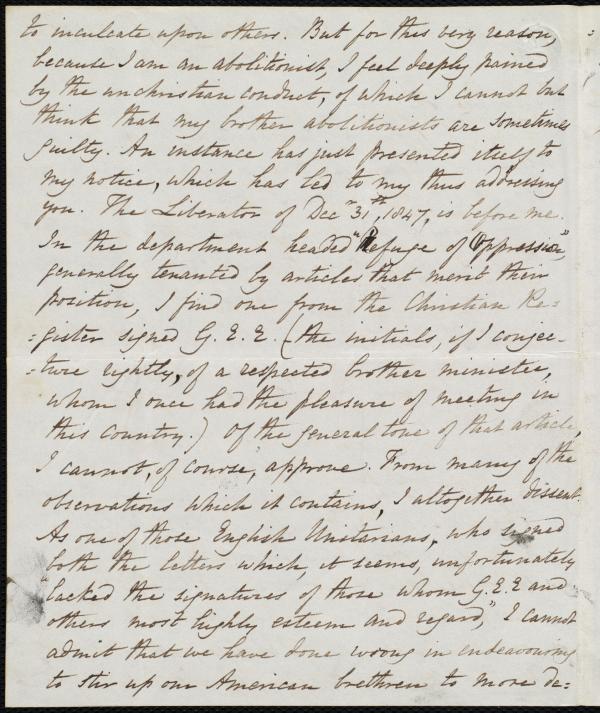 to inculcate upon others. But for this very reason,
because I am an abolitionist, I feel deeply pained
by the unchristian conduct, of which I cannot but
think that my brother abolitionists are sometimes
guilty. An instance has just presented itself to
my notice, which has led to my thus addressing
you. The Liberator of Decr 31st, 1847, is before me.
In the department headed "Refuge of Oppression",
generally tenanted by articles that merit their
position, I find one from the Christian Re=
=gister signed G. E. E. (the initials, if I conjec-
=ture rightly, of a respected brother minister,
whom I once had the pleasure of meeting in
this country.) Of the general tone of that article,
I cannot, of course, approve. From many of the
observations which it contains, I altogether dissent.
As one of those English Unitarians, who signed
both the letters which, it seems, unfortunately
"lacked the signatures of those whom G.E.E and
others most highly esteem and regard," I cannot
admit that we have done wrong in endeavouring
to stir up our American brethren to more de=